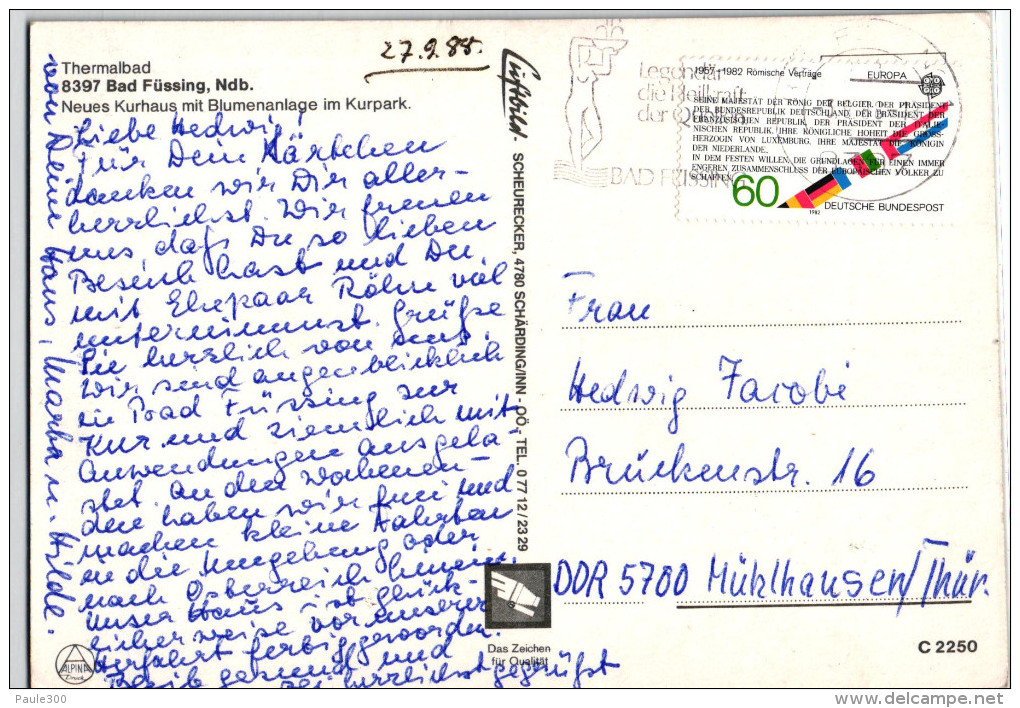 27.9.85.
Thermalbad
8397 Bad Füssing, Ndb.
Neues Kurhaus mit Blumenanlage im Kurpark.
Liebe Hedwig!
Für Dein Kärtchen
danken wir Dir aller-
herzlichst. Wir freuen
uns, daß Du so lieben
Besuch hast und Du
mit Ehepaar Röhn viel
unternimmst. Grüße
Sie herzlich von uns!
Wir sind augenblicklich
in Bad Füssing zur
Kur und ziemlich mit
Anwendungen ausgela
stet. An den Wochenen-
den haben wir frei und
machen kleine Fahrten
in die Umgebung oder
nach Österreich hinein.
Unser Haus ist glück-
licherweise vor unserer
Herfahrt fertig geworden.
Bleib gesund und
sei herzlichst gegrüßt
von Deinen Hans, Martha u. Hilde.
Luftbild - SCHEURECKER, 4780 SCHÄRDING/INN - OÖ, TEL. 0 77 12 / 23 29
Legendär
die Heilkraft
der Quellen
BAD FÜSSING
1957-1982 Römische Verträge
EUROPA
SEINE MAJESTÄT DER KÖNIG DER BELGIER, DER PRÄSIDENT
DER BUNDESREPUBLIK DEUTSCHLAND, DER PRÄSIDENT DER
FRANZÖSISCHEN REPUBLIK, DER PRÄSIDENT DER ITALIE-
NISCHEN REPUBLIK, IHRE KÖNIGLICHE HOHEIT DIE GROSS-
HERZOGIN VON LUXEMBURG, IHRE MAJESTÄT DIE KÖNIGIN
DER NIEDERLANDE,
IN DEM FESTEN WILLEN, DIE GRUNDLAGEN FÜR EINEN IMMER
ENGEREN ZUSAMMENSCHLUSS DER EUROPÄISCHEN VÖLKER ZU
SCHAFFEN
60
1982
DEUTSCHE BUNDESPOST
Frau
Hedwig Jacobi
Brückenstr. 16
DDR 5700 Mühlhausen/Thür.
Das Zeichen
für Qualität
C 2250
ALPINA
Druck
Paule300